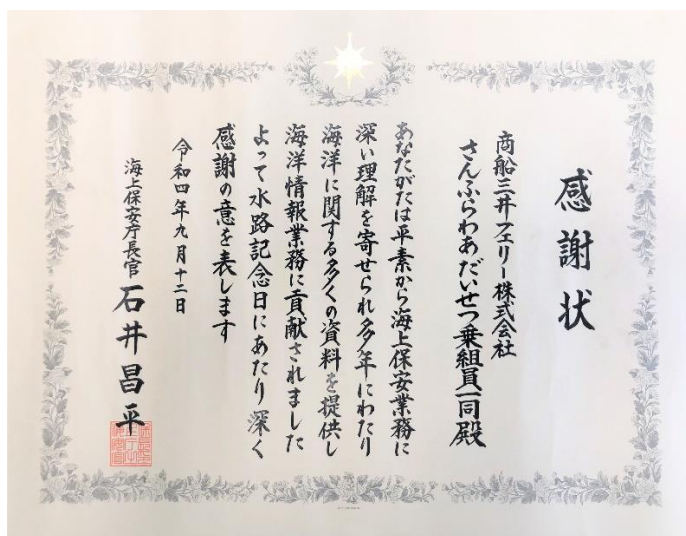 感謝状
商船三井フェリー株式会社
さんふらわあだいせつ乗組員一同殿
あなたがたは平素から海上保安業務に
深い理解を寄せられ多年にわたり
海洋に関する多くの資料を提供し
海洋情報業務に貢献されました
よって水路記念日にあたり深く
感謝の意を表します
令和四年九月十二日
海上保安庁長官 石井昌平